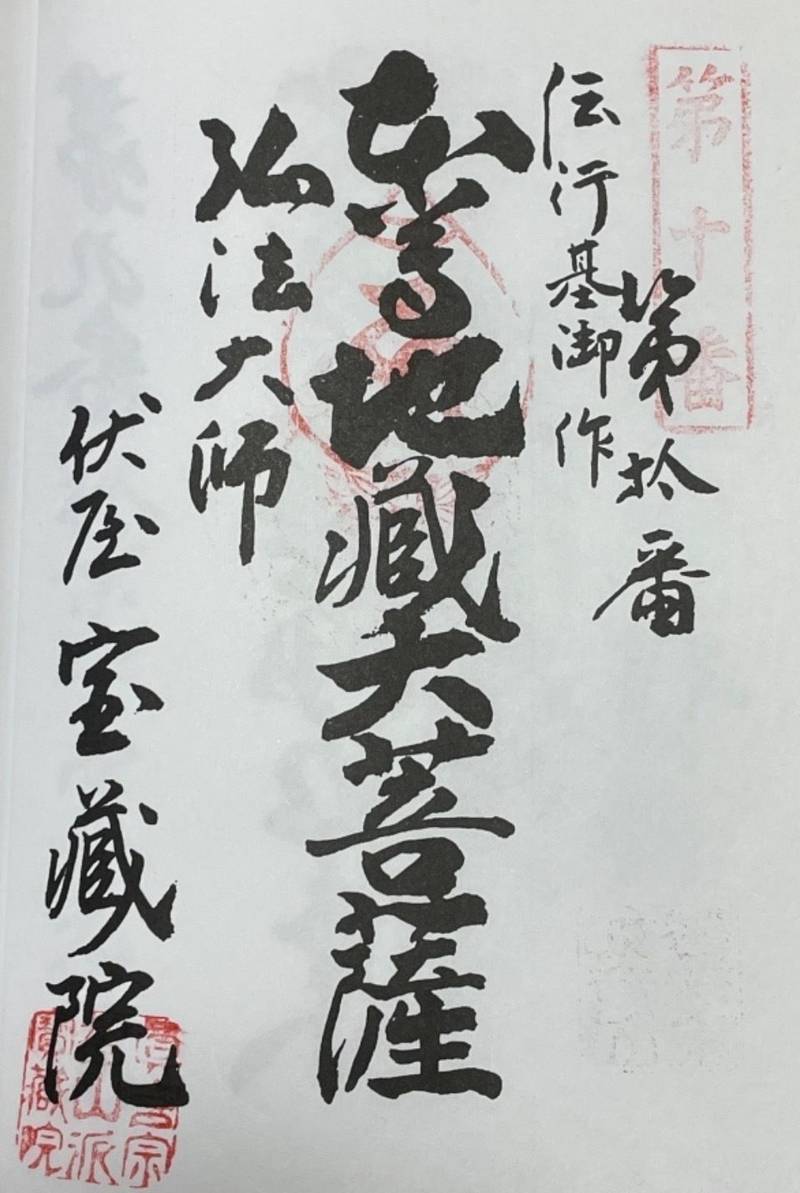 第十番
第拾番
伝行基御作
本尊地蔵大菩薩
弘法大師
伏屋 宝蔵院
宗
山派
宝蔵院